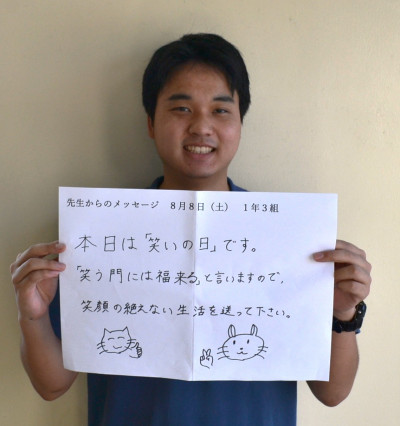 先生からのメッセージ　８月８日（土）　１年３組
本日は「笑いの日」です。
「笑う門には福来る」と言いますので、
笑顔の絶えない生活を送って下さい。